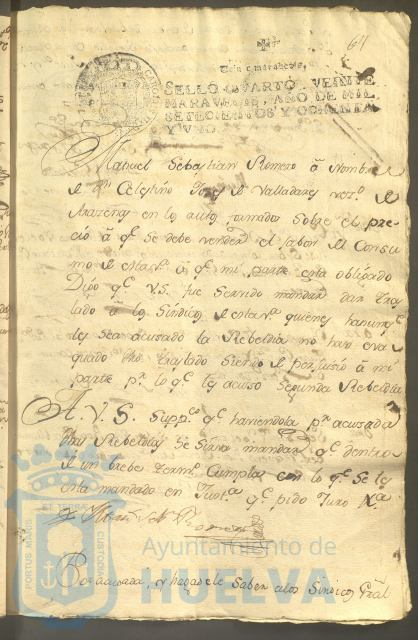 64
Veinte maravedis,
SELLO QVARTO, VEINTE
MARAVEDIS, AÑO DE MIL
SETECIENTOS Y OCHENTA
Y VNO.
Manuel Sebastian Romero â Nombre
de Dn Celestino Josef de Valladares vezo. de
Aracena en los autos formados sobre el pre
cio â qe. se debe vender el jabon del Consu
mo de esta vª. â qe. mi parte esta obligado
Digo qe. V.S. fue servido mandar dar tras
lado â los Sindicos de esta vª. quienes
les sea acusado la Rebeldia no han eva
quado dho traslado siendo de perjuicio â mi
parte pr. lo qe. les acuso segunda Rebeldia
A. V. S. Suppco qe. haviendola pr. acusada
dha Rebeldia se sirva mandar qe. dentro
de un brebe termo. Cumplan con lo qe. se les
esta mandado en Justª. qe. pido Juro &ª
Romero
Por acusada, y hagasele saber alos Sindicos Gral
PORTUS MARIS
CUSTODIA
Ayuntamiento de
HUELVA